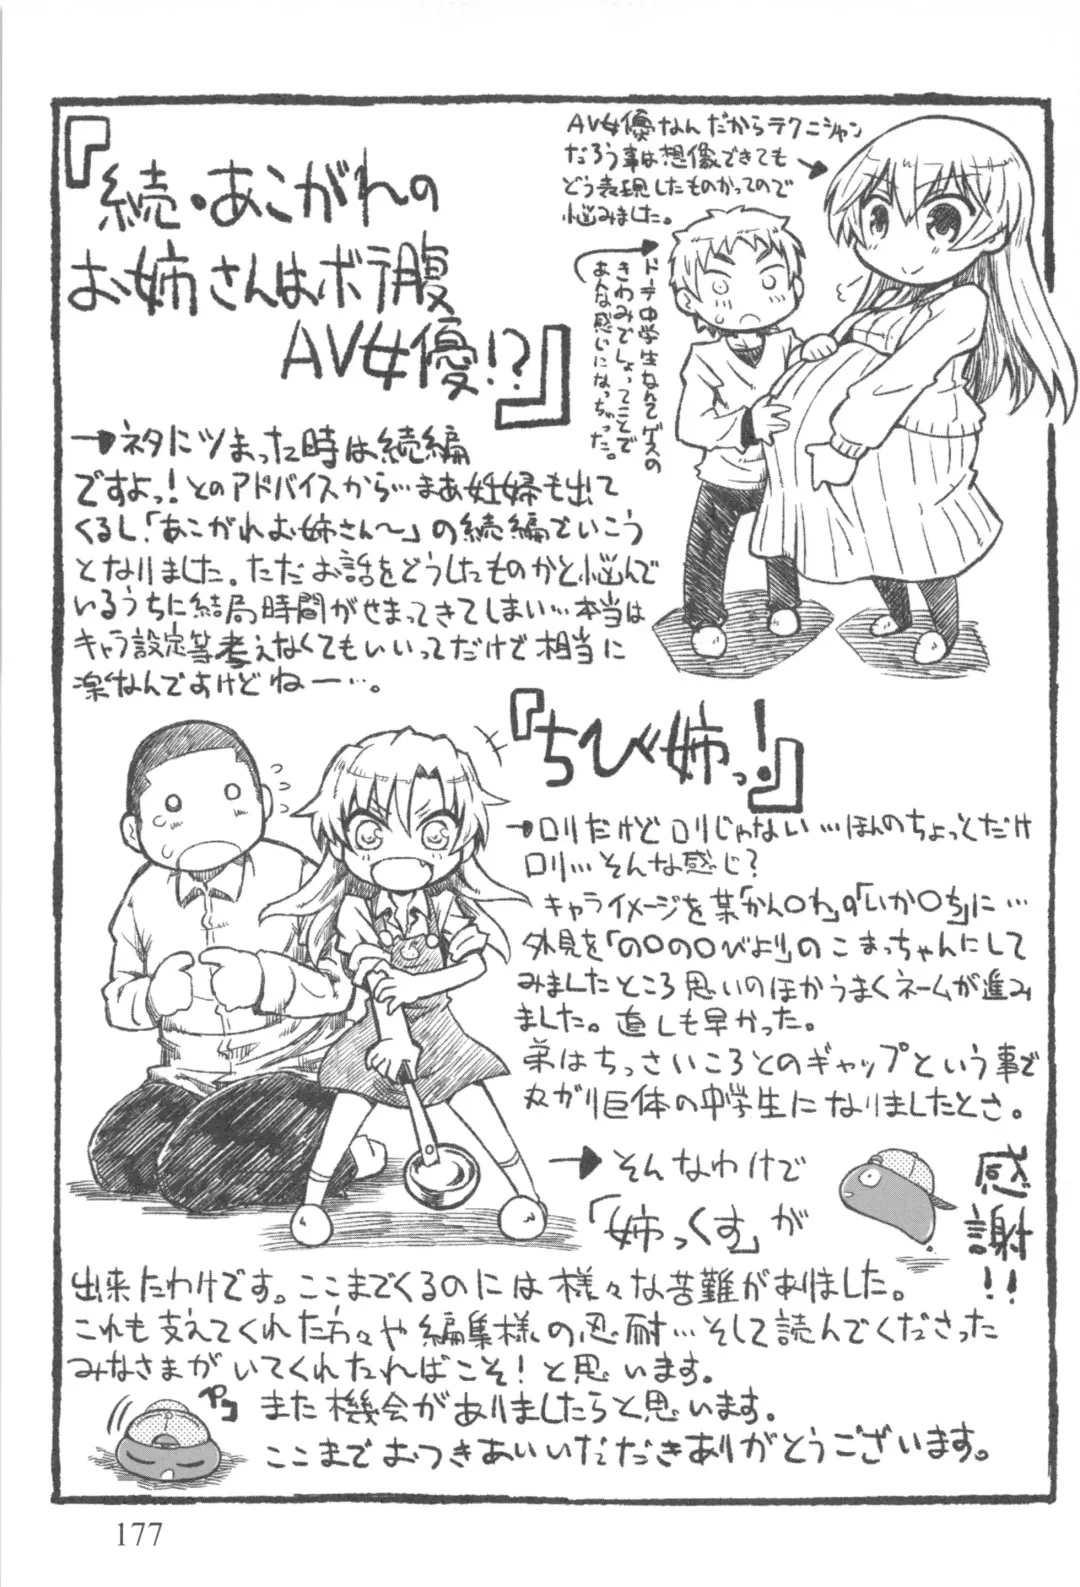 『続・あこがれの
お姉さんはボテ腹
AV女優!?』
AV女優なんだからテクニシャン
だろう事は想像できても
どう表現したものかってので
悩みました。
ドーテー中学生なんてゲスの
きわみでしょってことで
あんな感じになっちゃった。
→ネタにツまった時は続編
ですよっ！とのアドバイスから…まあ妊婦も出て
くるし「あこがれお姉さん〜」の続編でいこう
となりました。ただお話をどうしたものかと悩んで
いるうちに結局時間がせまってきてしまい…本当は
キャラ設定等考えなくてもいいってだけで相当に
楽なんですけどねー…。
『ちび姉っ！』
→ロリだけどロリじゃない…ほんのちょっとだけ
ロリ…そんな感じ？
キャライメージを某「かん○れ」の「いか○ち」に…
外見を「の○の○びより」のこまっちゃんにして
みましたところ思いのほかうまくネームが進み
ました。直しも早かった。
弟はちっさいころとのギャップという事で
丸がり巨体の中学生になりましたとさ。
→そんなわけで
「姉っくす」が
感謝!!
出来たわけです。ここまでくるのには様々な苦難がありました。
これも支えてくれた方々や編集様の忍耐…そして読んでくださった
みなさまがいてくれたればこそ！と思います。
ペコ
また機会がありましたらと思います。
ここまでおつきあいいただきありがとうございます。
177